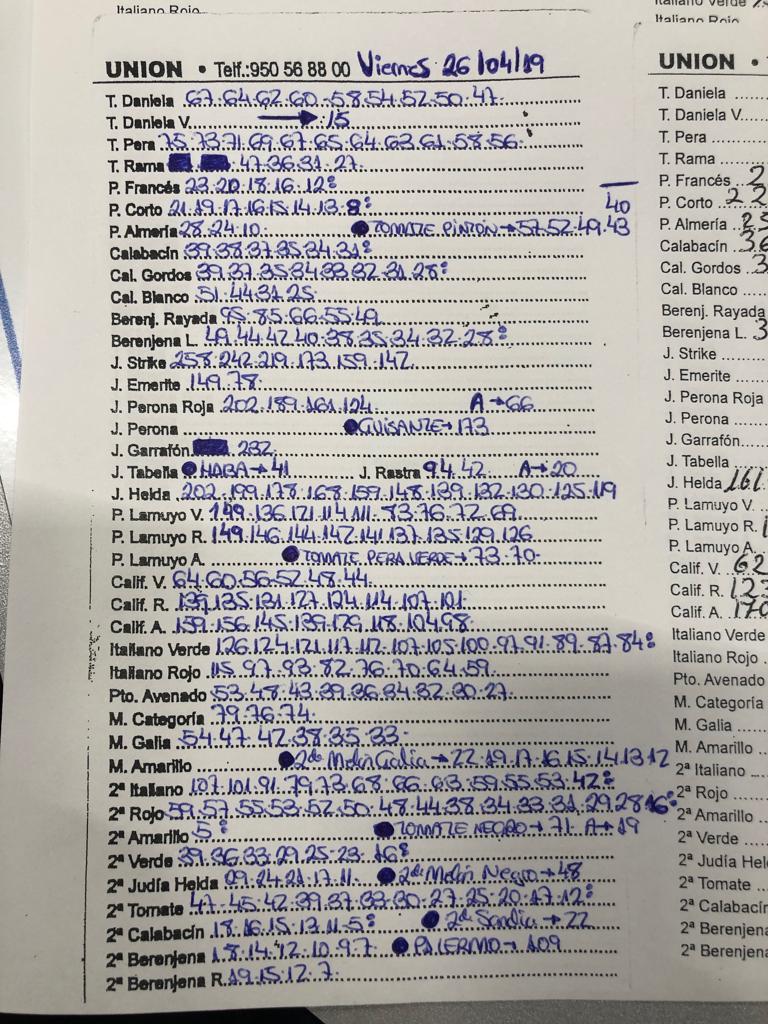 Italiano Rojo
UNION • Telf.:950 56 88 00 Viernes 26/04/19
T. Daniela 67.64.62.60.58.54.52.50.47.
T. Daniela V. → 15
T. Pera 75.73.71.69.67.65.64.63.61.58.56.
T. Rama 47.36.31.27.
P. Francés 23.20.18.16.12:
P. Corto 21.19.17.16.15.14.13.8: 40
P. Almería 28.24.10. ● TOMATE PINTÓN → 57.52.49.43
Calabacín 39.38.37.35.34.31:
Cal. Gordos 39.37.35.34.33.32.31.28:
Cal. Blanco 51.44.31.25
Berenj. Rayada 95.85.66.55.49
Berenjena L. 49.44.42.40.38.35.34.32.28:
J. Strike 258.242.219.173.159.147.
J. Emerite 149.78.
J. Perona Roja 202.189.161.124 A → 66
J. Perona ● GUISANTE → 173
J. Garrafón 232
J. Tabella ● HABA → 41 J. Rastra 94.42. A → 20
J. Helda 202.199.178.168.159.148.139.132.130.125.119
P. Lamuyo V. 149.136.121.114.111.83.76.72.69.
P. Lamuyo R. 149.146.144.142.141.137.135.129.126
P. Lamuyo A. ● TOMATE PERA VERDE → 73.70.
Calif. V. 64.60.56.52.48.44.
Calif. R. 139.135.131.127.124.114.107.101
Calif. A. 159.156.145.139.129.118.104.98
Italiano Verde 126.124.121.117.112.107.105.100.97.91.89.87.84:
Italiano Rojo 115.97.93.82.76.70.64.59.
Pto. Avenado 53.48.43.39.36.34.32.30.27.
M. Categoría 79.76.74.
M. Galia 54.47.42.38.35.33.
M. Amarillo ● 2ª Melón Galia → 22.19.17.16.15.14.13.12
2ª Italiano 107.101.91.79.73.68.66.63.59.55.53.42:
2ª Rojo 59.57.55.53.52.50.48.44.38.34.33.31.29.28.16:
2ª Amarillo 5: ● TOMATE NEGRO → 71. A → 19
2ª Verde 39.36.33.29.25.23.16:
2ª Judía Helda 24.21.17.11. ● 2ª Melón Negro → 48
2ª Tomate 47.45.42.39.37.33.30.27.25.20.17.12:
2ª Calabacín 18.16.15.13.11.5: ● 2ª Sandía → 22
2ª Berenjena 18.14.12.10.9.7. ● PALERMO → 109
2ª Berenjena R. 19.15.12.7.
Italiano Verde
Italiano Rojo
UNION •
T. Daniela
T. Daniela V.
T. Pera
T. Rama
P. Francés 2
P. Corto 22
P. Almería 25
Calabacín 36
Cal. Gordos 3
Cal. Blanco
Berenj. Rayada
Berenjena L. 3
J. Strike
J. Emerite
J. Perona Roja
J. Perona
J. Garrafón
J. Tabella
J. Helda 161
P. Lamuyo V.
P. Lamuyo R. 1
P. Lamuyo A.
Calif. V. 62
Calif. R. 123
Calif. A. 170
Italiano Verde
Italiano Rojo
Pto. Avenado
M. Categoría
M. Galia
M. Amarillo
2ª Italiano
2ª Rojo
2ª Amarillo
2ª Verde
2ª Judía Hel
2ª Tomate
2ª Calabacín
2ª Berenjena
2ª Berenjena